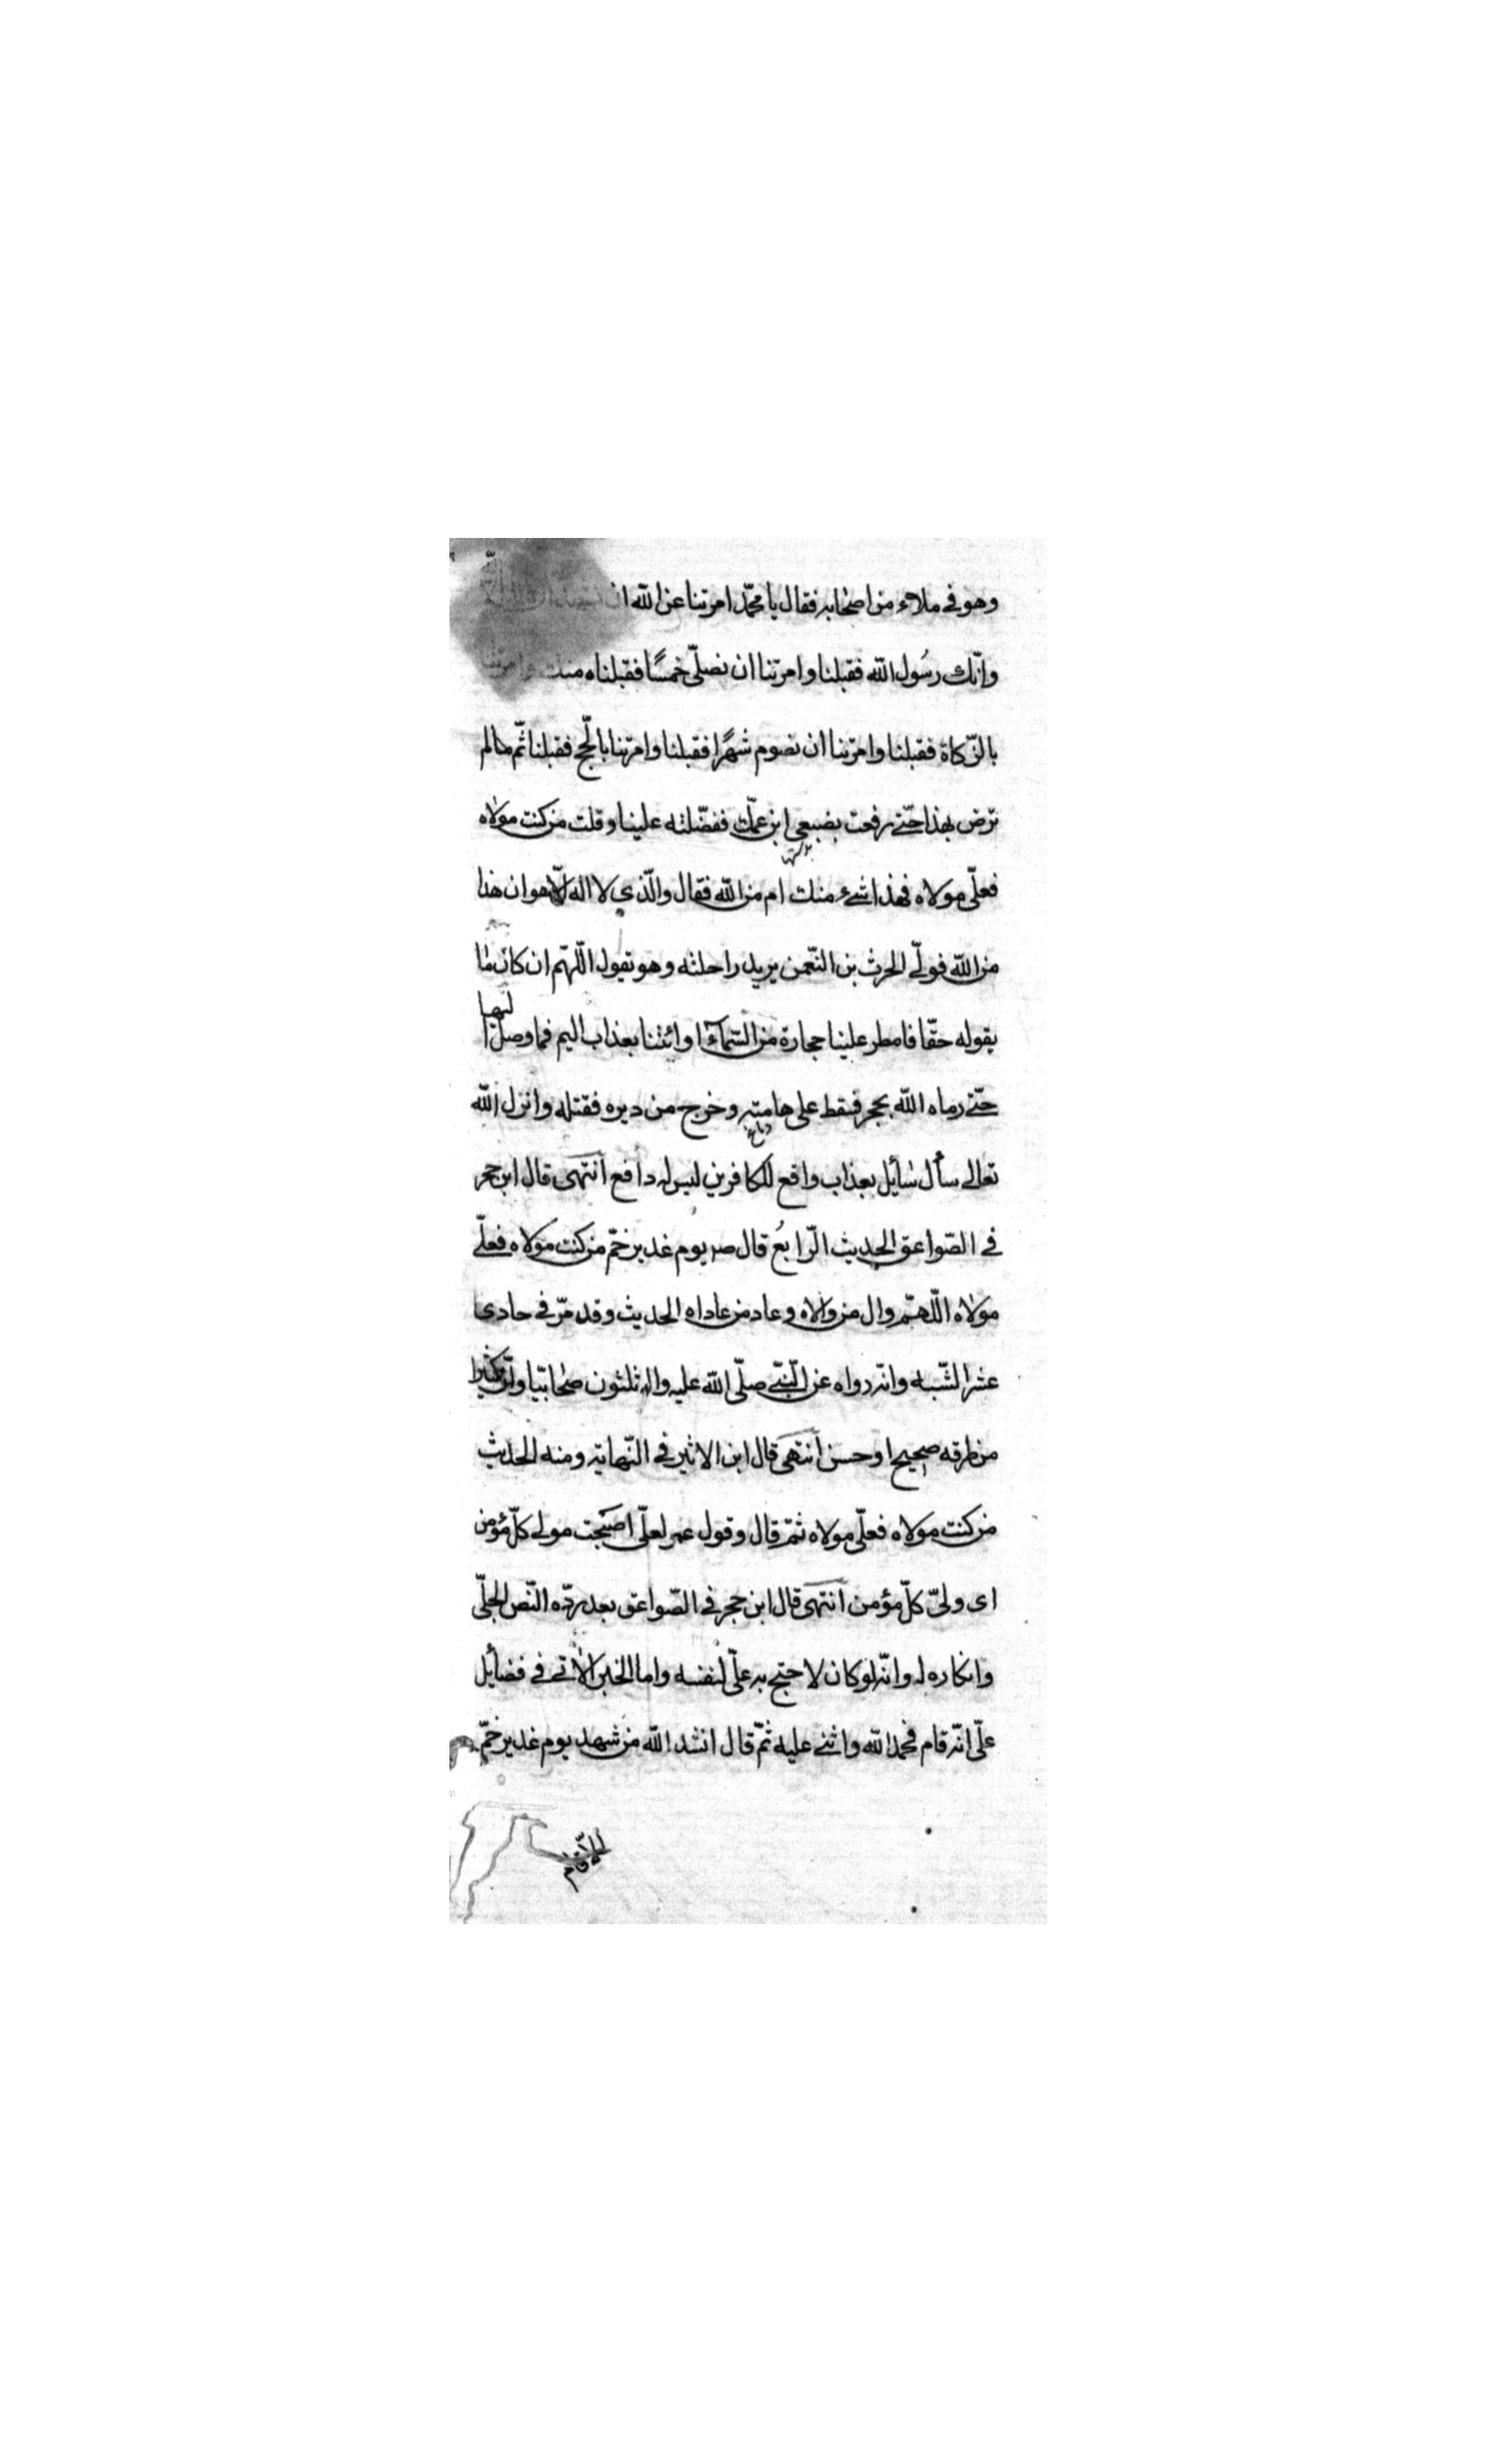 وهو في ملاء من اصحابه فقال يا محمّد امرتنا عن الله ان نشهد ان لا اله الّا الله
وانّك رسُول الله فقبلنا وامرتنا ان نصلّي خمسًا فقبلناه منك وامرتنا
بالزّكاة فقبلنا وامرتنا ان نصوم شهرًا فقبلنا وامرتنا بالحجّ فقبلنا ثمّ ما لم
ترض بهذا حتّى رفعت بضبعي ابن عمّك ففضّلته علينا وقلت من كنت مولاه
فعلّي مولاه فهذا شيء منك ام من الله فقال والّذي لا اله الّا هو ان هذا
من الله فولّى الحرث بن النّعمن يريد راحلته وهو يقول اللّهمّ ان كان ما
يقوله حقّا فامطر علينا حجارة من السّماء او ائتنا بعذاب اليم فما وصل اليها
حتّى رماه الله بحجر فسقط على هامته وخرج من دبره فقتله وانزل الله
تعالى سأل سائل بعذاب واقع للكافرين ليس له دافع انتهى قال ابن حجر
في الصّواعق الحديث الرّابعُ قال ص يوم غدير خمّ من كنت مولاه فعلّي
مولاه اللّهمّ وال من والاه وعاد من عاداه الحديث وقد مرّ في حادى
عشر الشّبه وانّه رواه عن النّبيّ صلّى الله عليه واله ثلثون صحابيّا وانّ كثيرا
من طرقه صحيح او حسن انتهى قال ابن الاثير في النّهاية ومنه الحديث
من كنت مولاه فعلّي مولاه ثمّ قال وقول عمر لعلّي اصبحت مولى كلّ مؤمن
اى وليّ كلّ مؤمن انتهى قال ابن حجر في الصّواعق بعد ردّه النّص الجلّي
وانكاره له وانّه لو كان لاحتج به علّي لنفسه واما الخبر الاتي في فضايل
علّي انّه قام فحمد الله واثنى عليه ثمّ قال انشد الله من شهد يوم غدير خمّ
الّا قام